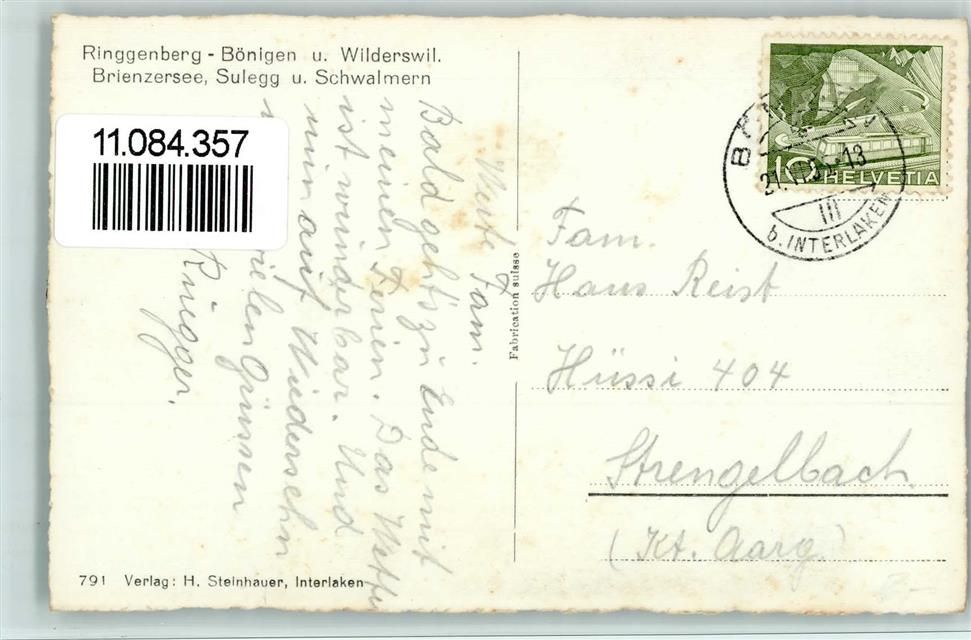 Ringgenberg - Bönigen u. Wilderswil.
Brienzersee, Sulegg u. Schwalmern
11.084.357
Werte Fam.
Bald geht's zu Ende mit
meinen Ferien. Das Wetter
ist wunderbar. Und
nun auf Wiedersehn
vielen Grüssen
Rüegger.
Fabrication suisse
10 HELVETIA
13
III
b. INTERLAKEN
Fam.
Hans Reist
Hüssi 404
Strengelbach
(Kt. Aarg.)
791 Verlag: H. Steinhauer, Interlaken